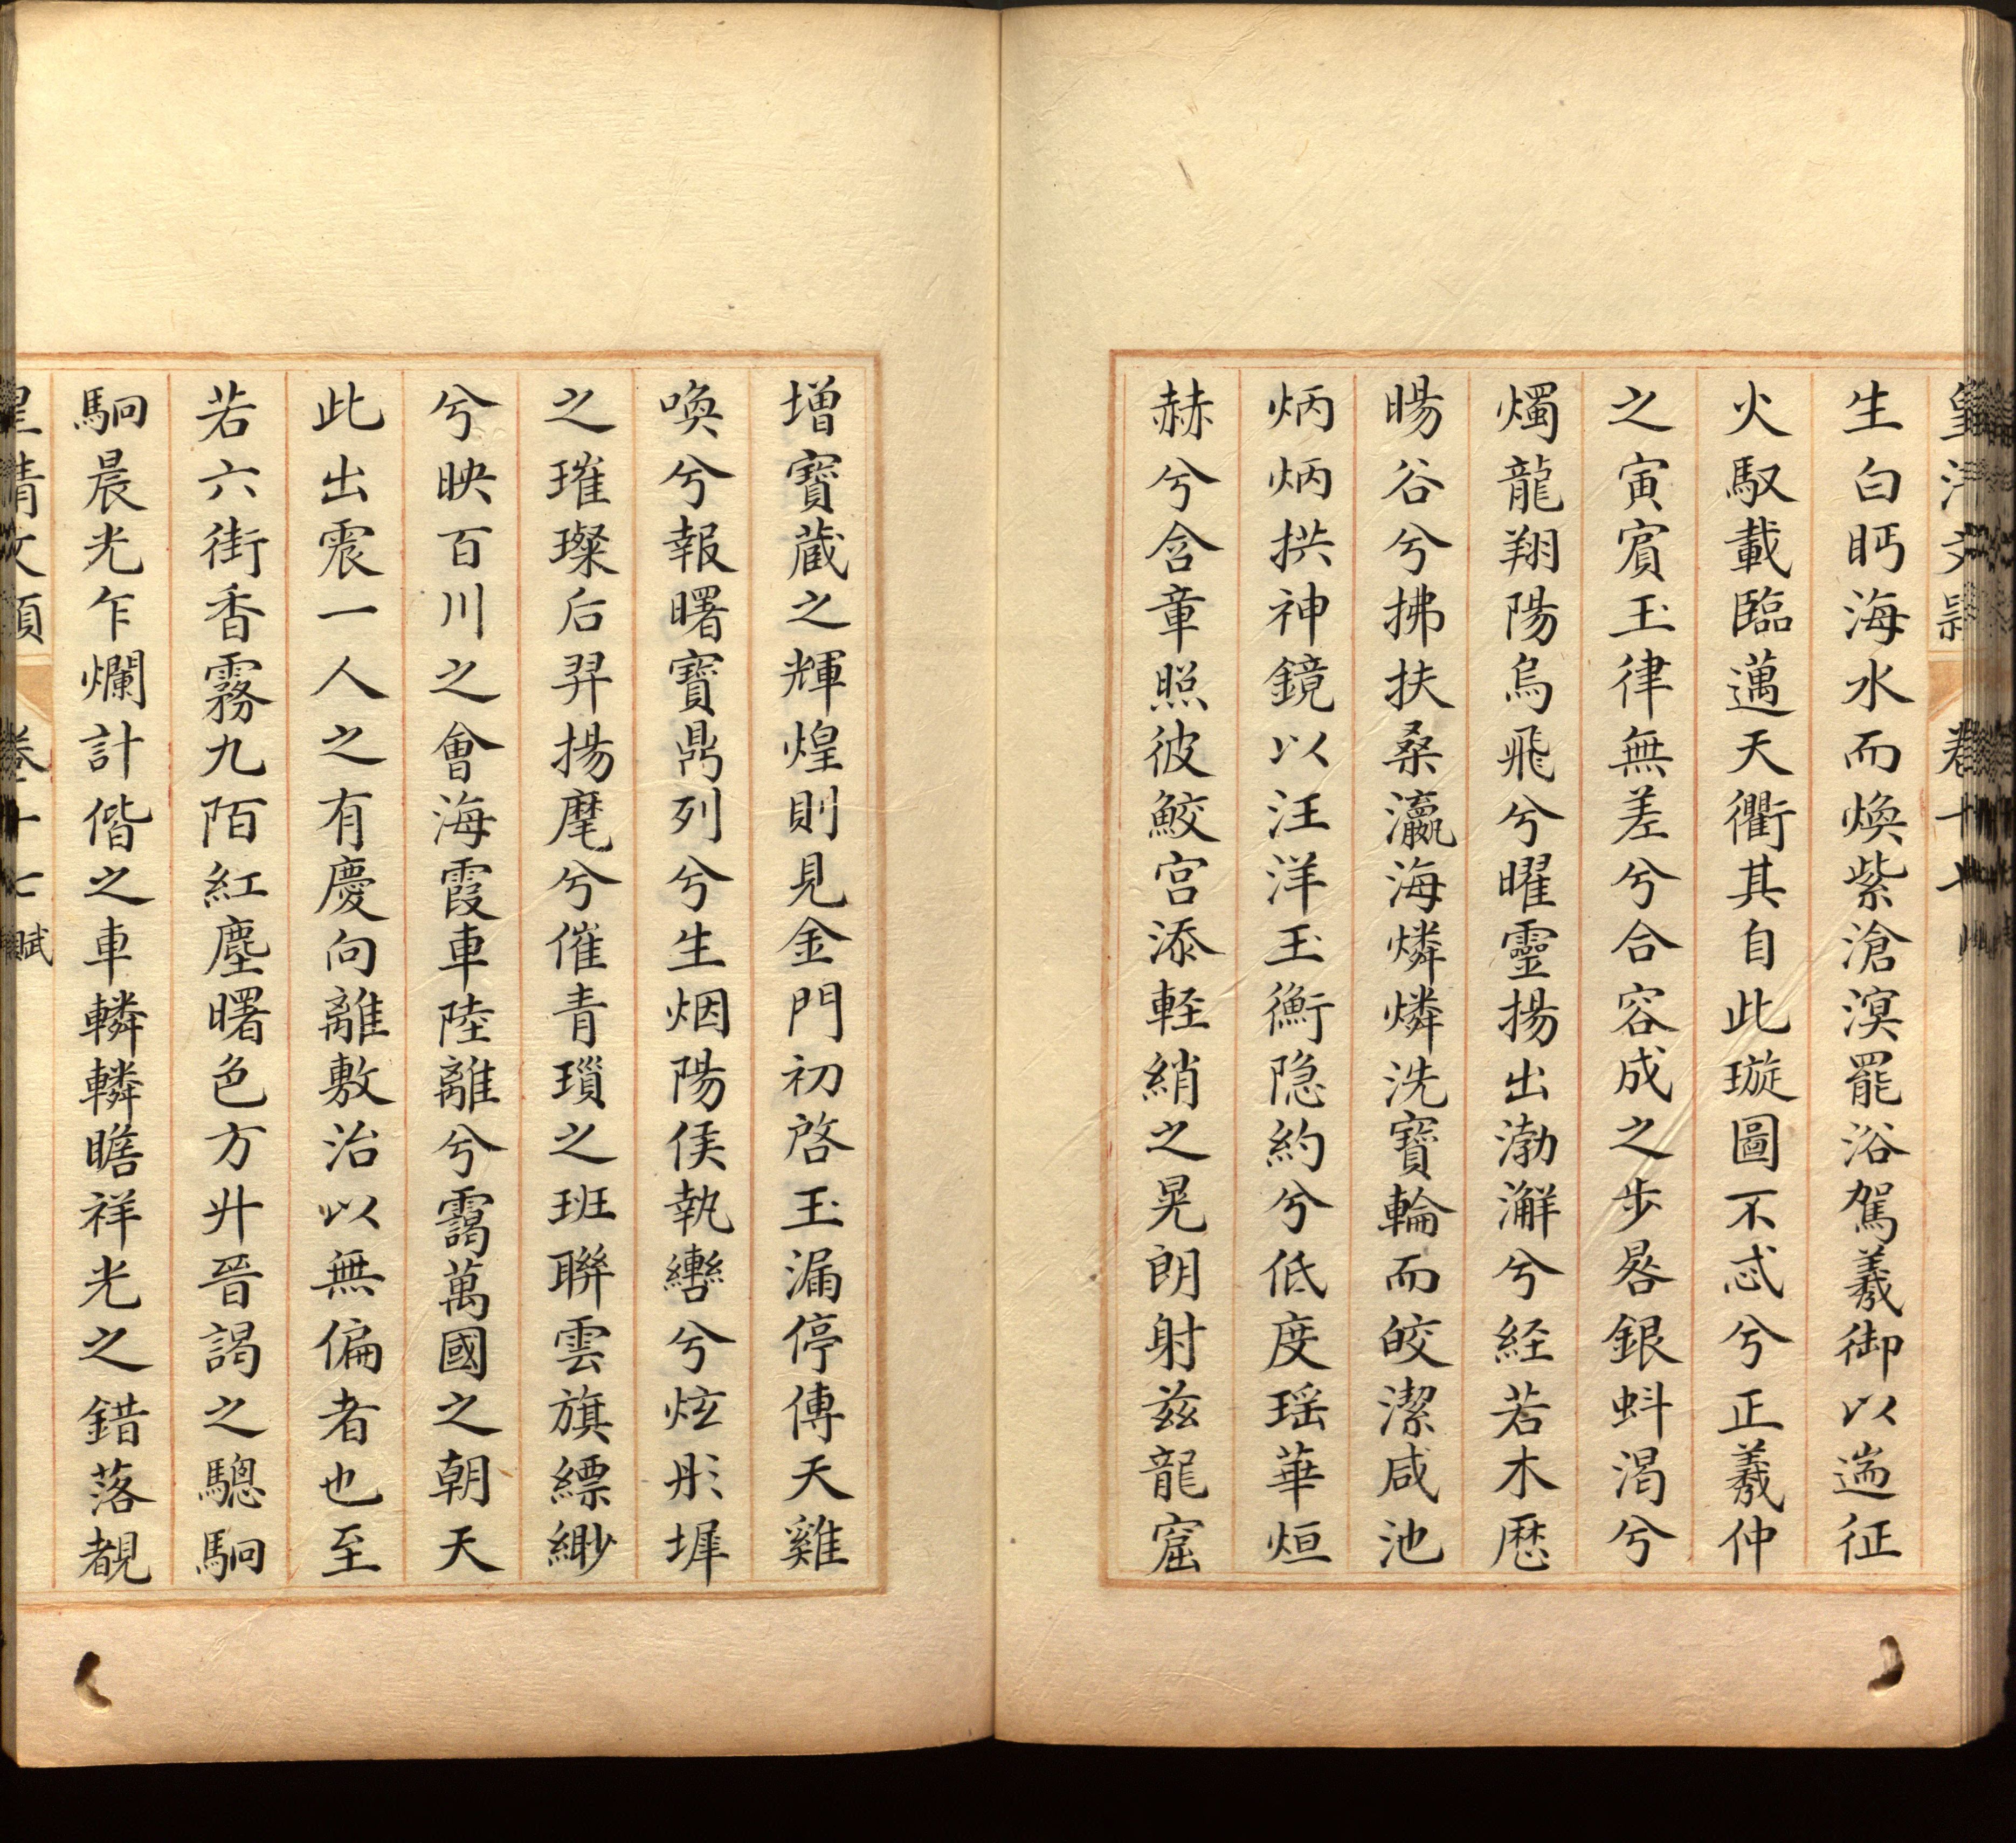 皇清文穎 卷十七 賦
生白眄海水而煥紫滄溟罷浴駕羲御以遄征
火馭載臨邁天衢其自此璇圖不忒兮正羲仲
之寅賓玉律無差兮合容成之步晷銀蚪渴兮
燭龍翔陽烏飛兮曜靈揚出渤澥兮経若木厯
暘谷兮拂扶桑瀛海燐燐洗寶輪而皎潔咸池
炳炳拱神鏡以汪洋玉衡隐約兮低度瑶華烜
赫兮含章照彼鮫宮添軽綃之晃朗射兹龍窟
増寶蔵之輝煌則見金門初啓玉漏停傳天雞
喚兮報曙寶鼎列兮生烟陽侯執轡兮炫彤墀
之璀璨后羿揚麾兮催青瑣之班聯雲旗縹緲
兮映百川之會海霞車陸離兮靄萬國之朝天
此出震一人之有慶向離敷治以無偏者也至
若六街香霧九陌紅塵曙色方廾晉謁之驄駉
駉晨光乍爛計偕之車轔轔瞻祥光之錯落覩
皇清文穎 卷十七 賦